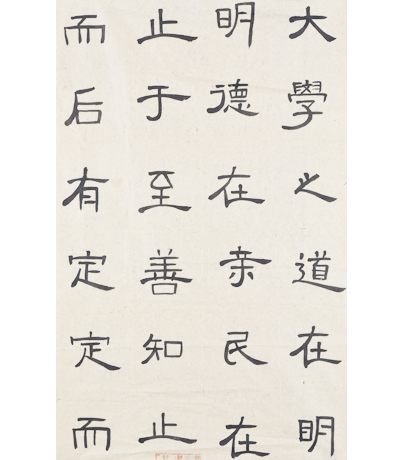 大學之道在明
明德在亲民在
止于至善知止
而后有定定而